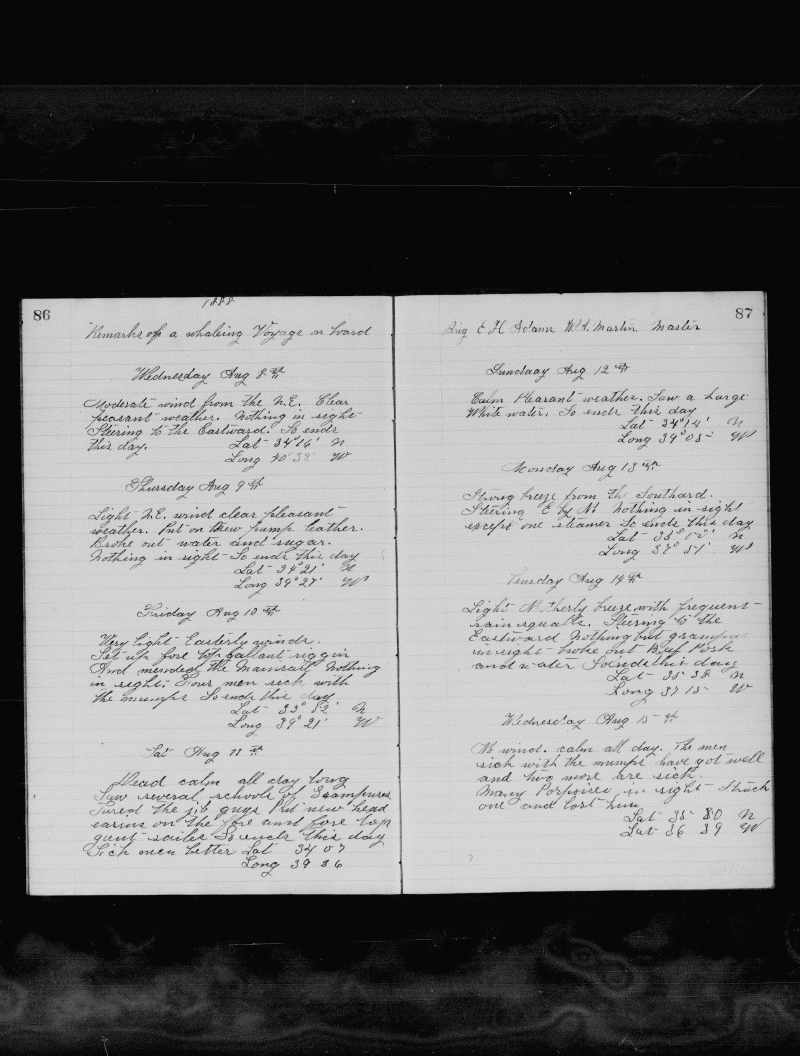 86
1888
Remarks of a whaleing Voyage on board
Wednesday Aug 8th
Moderate wind from the N.E. Clear
peasant weather. Nothing in sight
Steering to the Eastward. So ends
this day. Lat 34° 16' N
Long 40° 38' W
Thursday Aug 9th
Light N.E. wind clear pleasant
weather. Put on new pump leather.
Broke out water and sugar.
Nothing in sight So ends this day
Lat 34° 21' N
Long 39° 27' W
Friday Aug 10th
Very Light Easterly winds.
Set up fore top gallant riggin
And mended the Mainsail Nothing
in sight. Four men sick with
the mumps So ends this day
Lat 33° 52' N
Long 39° 21' W
Sat Aug 11th
Dead calm all day long
Saw several schools of Grampuses
the jib guys Put new head
earins on the fore and fore top
sailes So ends this day
Sick men better Lat 34 07
Long 39 36
87
Brig E H Adams W.A. Martin Master
Sundaay Aug 12th
Calm Pleasant weather. Saw a large
White water. So ends this day
Lat 34° 14' N
Long 39° 05 W
Monday Aug 13th
Strong breeze from the Southard.
Steering E by N. Nothing in sight
except one steamer So ends this day
Lat 35° N
Long 37° 51' W
Tuesday Aug 14th
Light Northerly breeze with frequent
rain squalls. Steering to the
Eastward Nothing but grampus
in sight Broke out Beef Pork
and water So ends this day
Lat 35 38 N
Long 37 15 W
Wednesday Aug 15th
No wind. calm all day. The men
sick with the mumps have got well
and two more are sick.
Many Porpoises in sight Struck
one and lost him
Lat 35 80 N
Lat 36 39 W